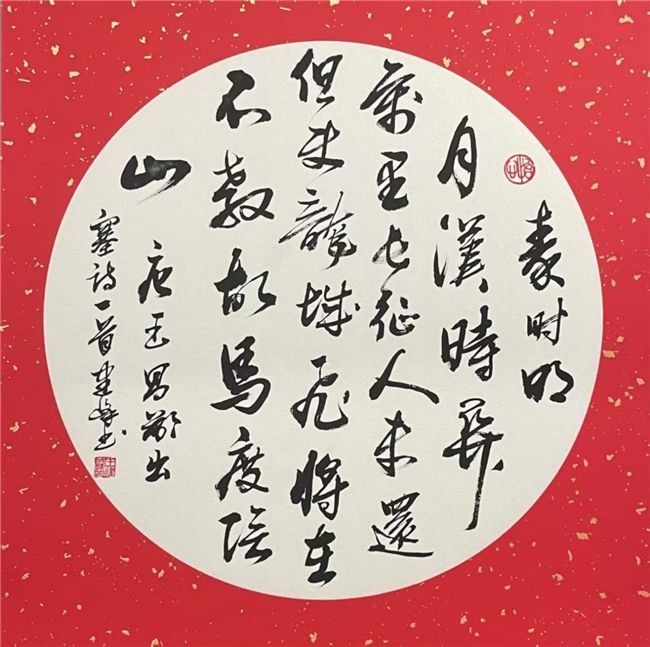 秦时明
月漢時關
萬里长征人未還
但使龍城飞將在
不教胡馬度陰
山 唐王昌龄出
塞诗一首